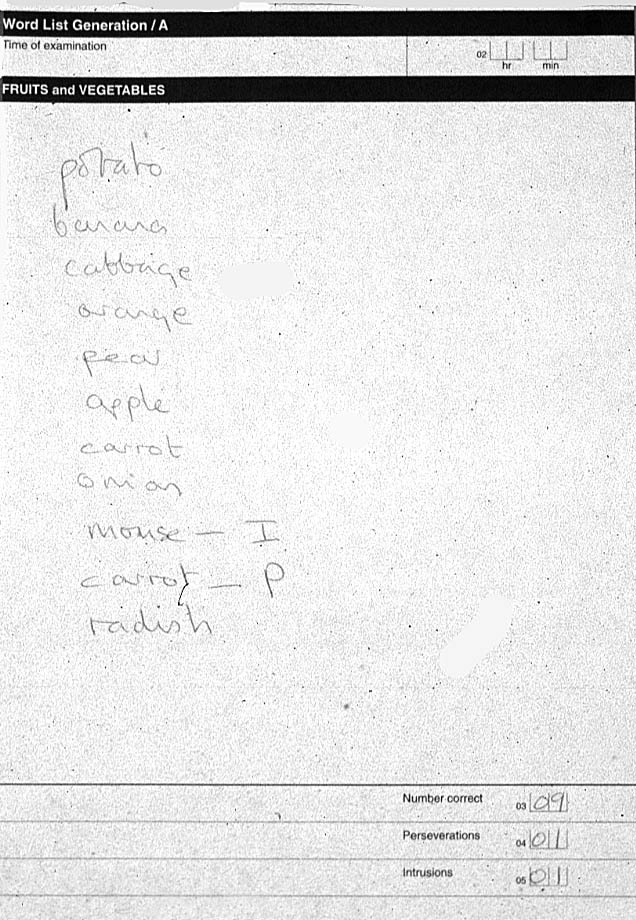 Word List Generation / A
Time of examination
02
hr min
FRUITS and VEGETABLES
potato
banana
cabbage
orange
pear
apple
carrot
onion
mouse – I
carrot – P
radish
Number correct 03 09
Perseverations 04 01
Intrusions 05 01